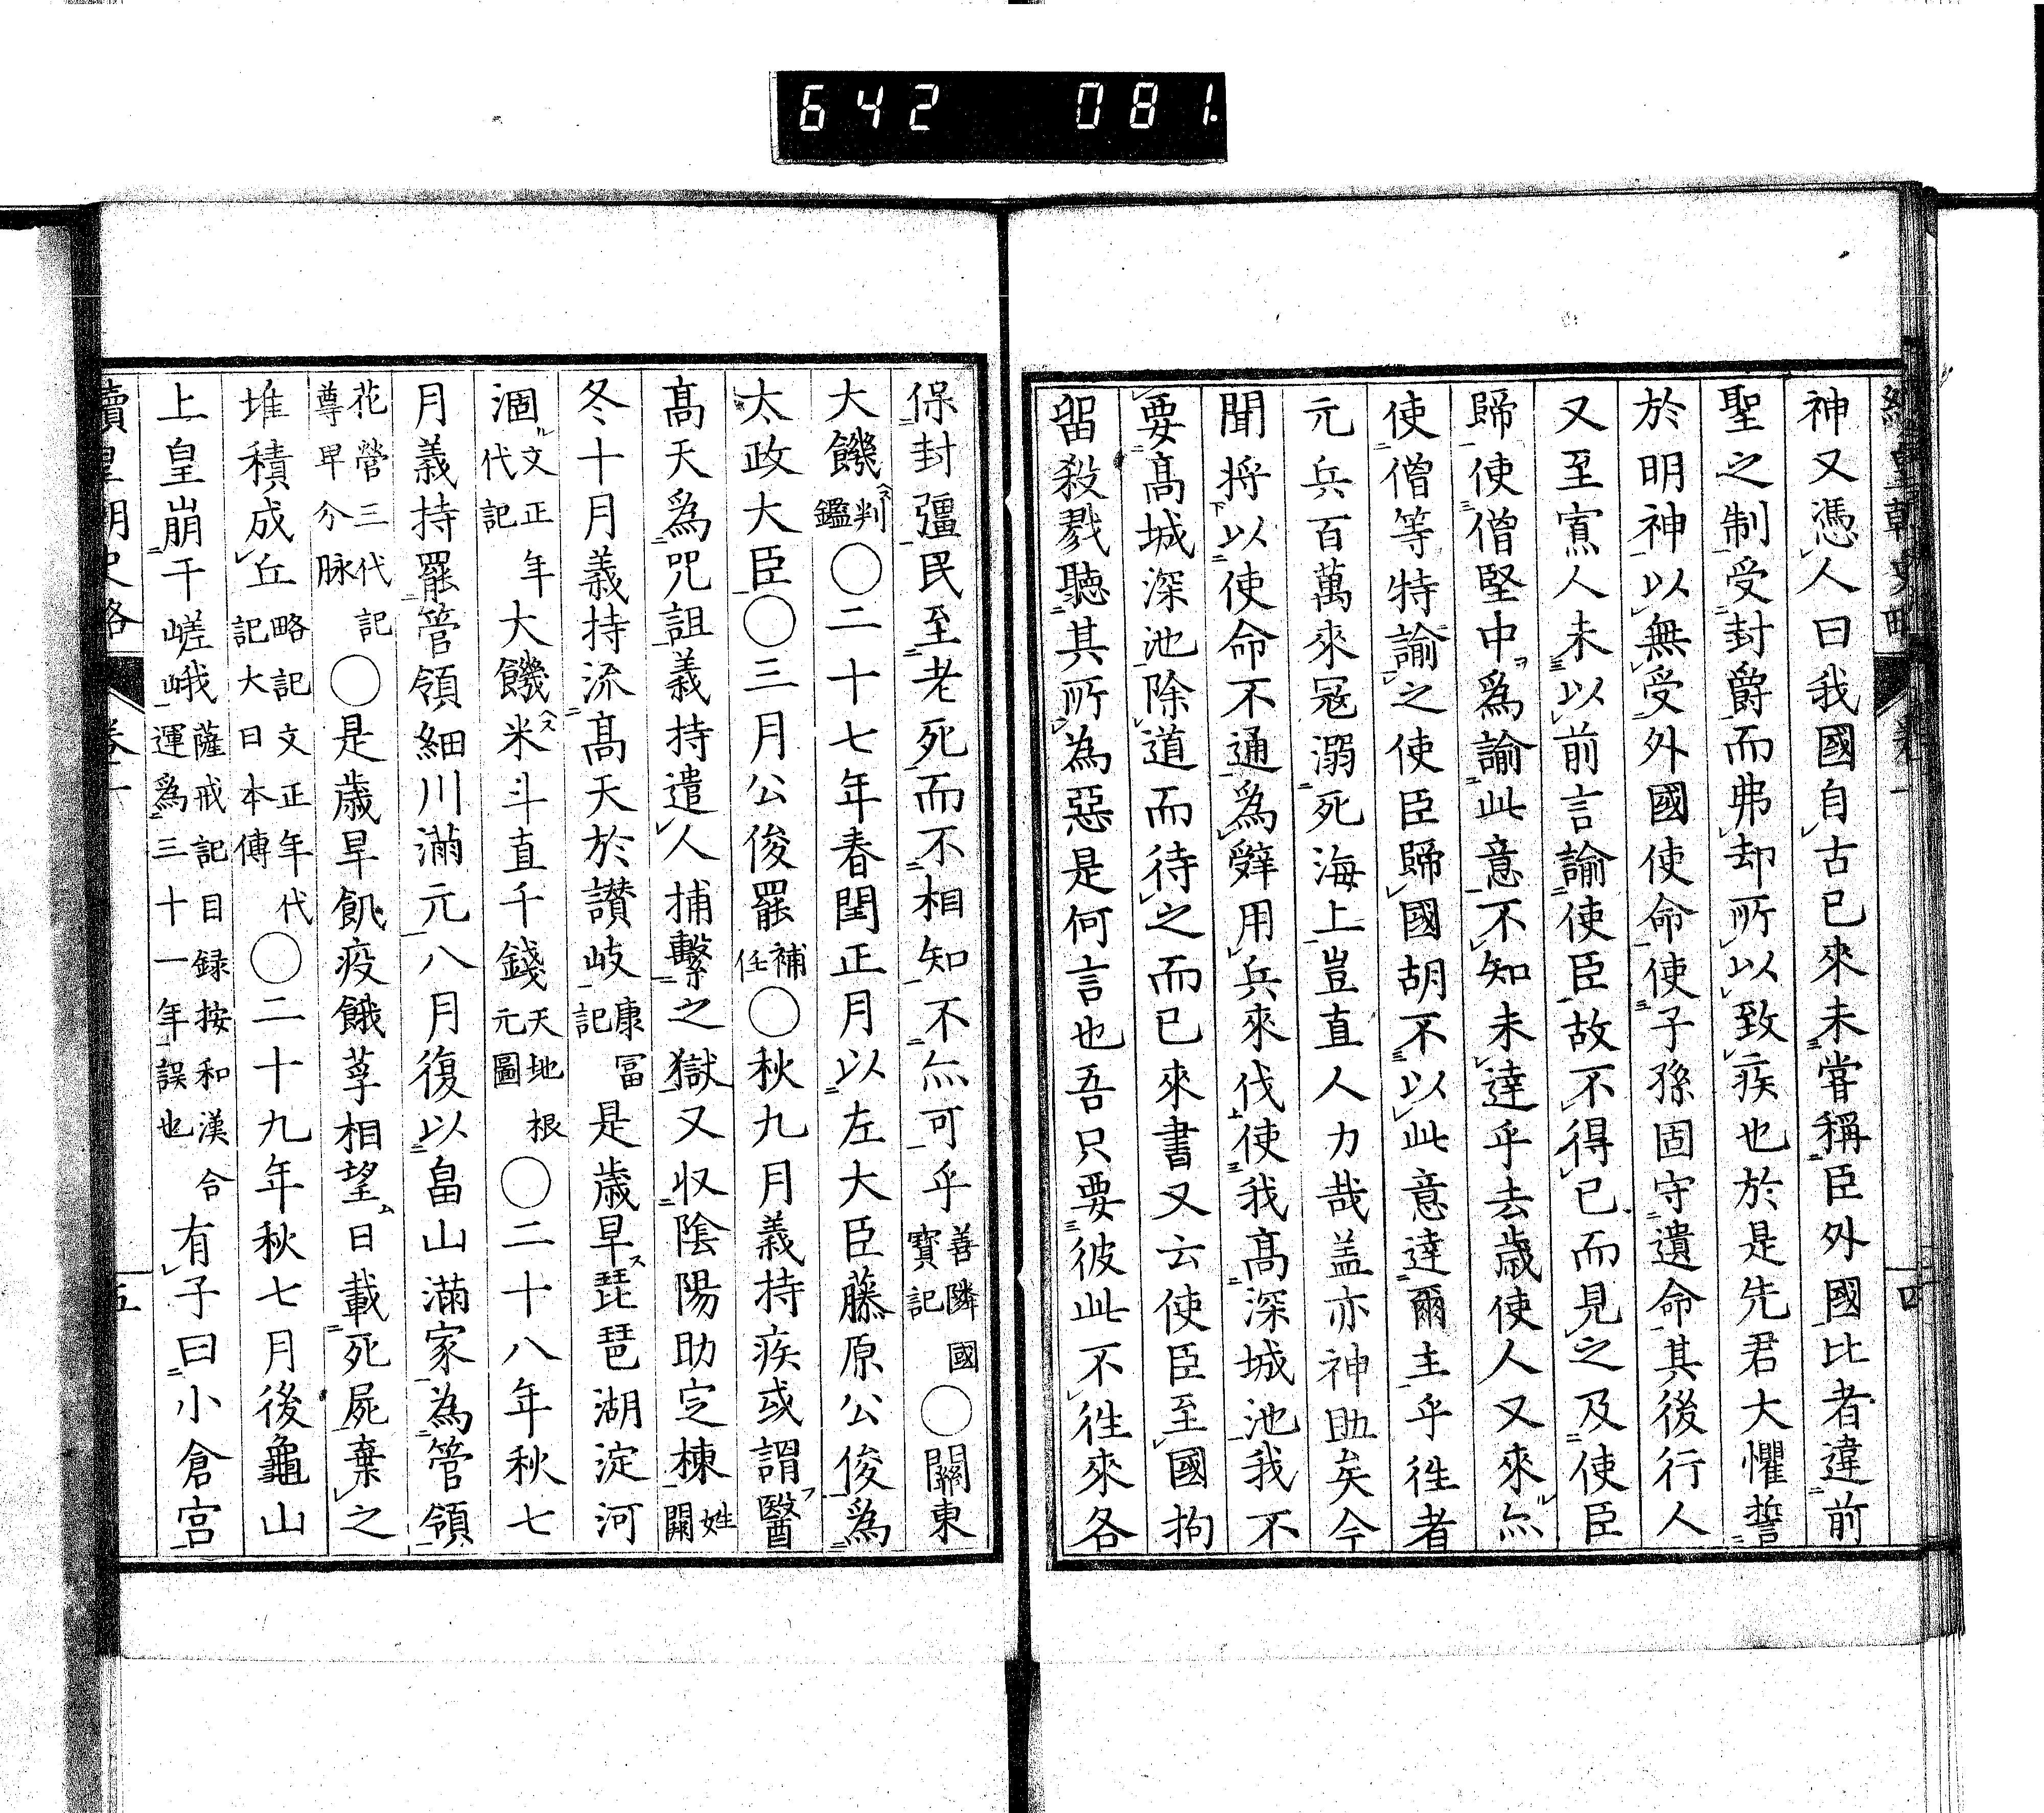 642 081.
神又憑人曰我國自古已來未嘗稱臣外國比者違前
聖之制受封爵而弗却所以致疾也於是先君大懼誓
於明神以無受外國使命使子孫固守遺命其後行人
又至寡人未以前言諭使臣故不得已而見之及使臣
歸使僧堅中爲諭此意不知未達乎去歲使人又來亦
使僧等特諭之使臣歸國胡不以此意達爾主乎徃者
元兵百萬來寇溺死海上豈直人力哉盖亦神助矣今
聞將以使命不通爲辭用兵來伐使我高深城池我不
要高城深池除道而待之而已來書又云使臣至國拘
留殺戮聽其所為惡是何言也吾只要彼此不徃來各
保封疆民至老死而不相知不亦可乎善隣國寶記○關東
大饑判鑑○二十七年春閏正月以左大臣藤原公俊爲
太政大臣○三月公俊罷補任○秋九月義持疾或謂醫
高天爲咒詛義持遣人捕繫之獄又収陰陽助定棟姓闕
冬十月義持流高天於讃岐康冨記是歲旱琵琶湖淀河
涸文正年代記大饑米斗直千錢天地根元圖○二十八年秋七
月義持罷管領細川滿元八月復以畠山滿家為管領
花營三代記尊卑分脉○是歲旱飢疫餓莩相望日載死屍棄之
堆積成丘略記文正年代記大日本傳○二十九年秋七月後龜山
上皇崩于嵯峨薩戒記目録按和漢合運爲三十一年誤也有子曰小倉宮